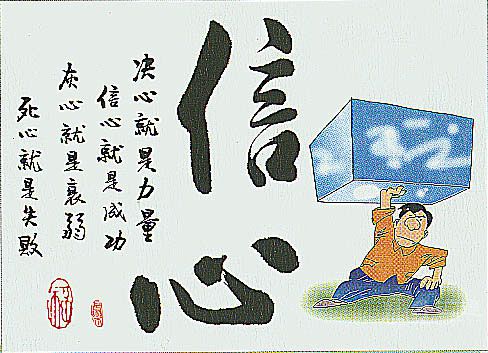 信心
决心就是力量
信心就是成功
灰心就是衰弱
死心就是失败